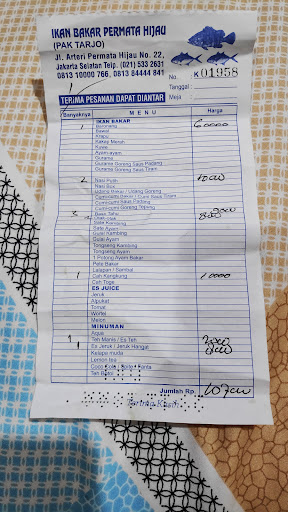 IKAN BAKAR PERMATA HIJAU
(PAK TARJO)
Jl. Arteri Permata Hijau No. 22,
Jakarta Selatan Telp. (021) 533 2631
0813 10000 766, 0813 84444 841
No. : K 01958
Tanggal :
TERIMA PESANAN DAPAT DIANTAR
Meja :
Banyaknya MENU Harga
IKAN BAKAR
1 Baronang 60000
Bawal
Krapu
Kakap Merah
Kuwe
Ayam-ayam
Gurame
Gurame Goreng Saus Padang
Gurame Goreng Saus Tiram
2 Nasi Putih
Nasi Box
Udang Bakar / Udang Goreng
Cumi-cumi Bakar / Cumi Saus Tiram
Cumi-cumi Saus Padang
Cumi-cumi Goreng Tepung
Otak-Otak
Sate Kambing
Sate Ayam
Gulai Kambing
Gulai Ayam
Tongseng Kambing
Tongseng Ayam
1 Potong Ayam Bakar
Pete Bakar
Lalapan / Sambal
1 Cah Kangkung 10000
Cah Toge
ES JUICE
Jeruk
Alpukat
Tomat
Wortel
Melon
MINUMAN
Aqua
Teh Manis / Es Teh
Es Jeruk / Jeruk Hangat
Kelapa muda
Lemon tea
Coca Cola / Sprite / Fanta
Teh Botol
Jumlah Rp.
Terima Kasih